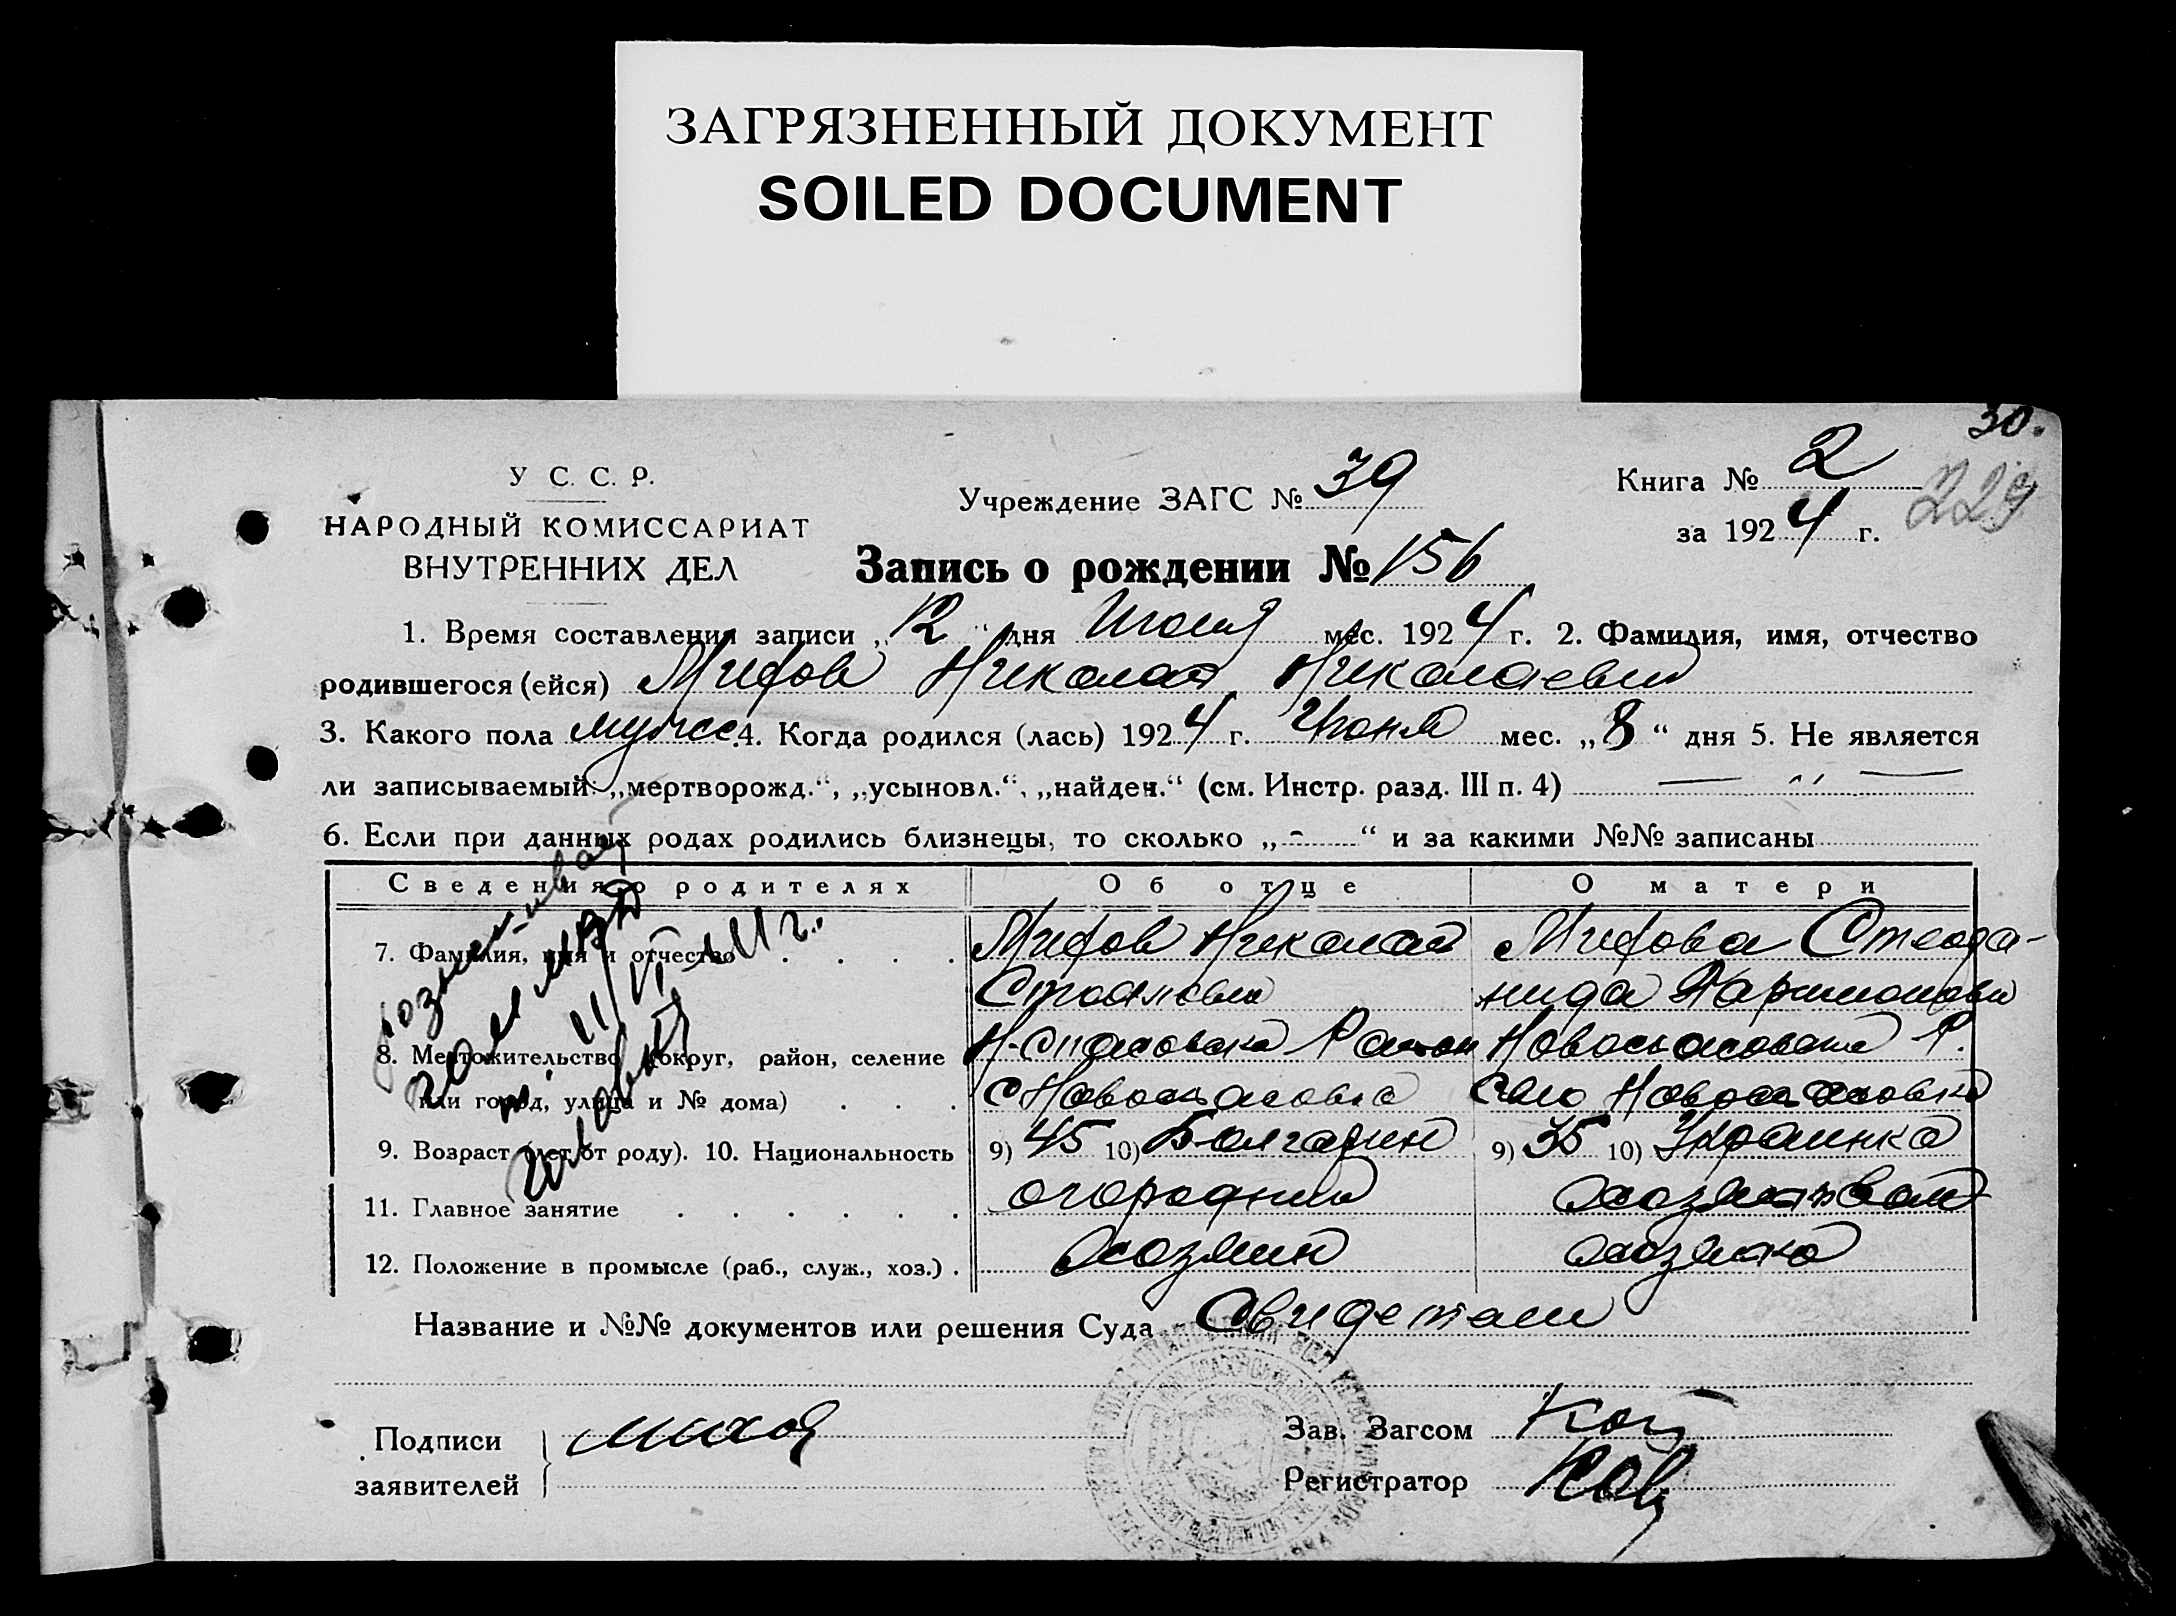 ЗАГРЯЗНЕННЫЙ ДОКУМЕНТ
SOILED DOCUMENT
30.
229
У С. С. Р.
НАРОДНЫЙ КОМИССАРИАТ
ВНУТРЕННИХ ДЕЛ
Учреждение ЗАГС № 39
Книга № 2
за 1924 г.
Запись о рождении № 156
1. Время составления записи „12“ дня Июня мес. 1924 г. 2. Фамилия, имя, отчество
родившегося (ейся) Мифов Николай Николаевич
3. Какого пола мужск. 4. Когда родился (лась) 1924 г. Июня мес. „8“ дня 5. Не является
ли записываемый: „мертворожд.“, „усыновл.“, „найден.“ (см. Инстр. разд. III п. 4) — „ —
6. Если при данных родах родились близнецы, то сколько „-“ и за какими №№ записаны
Сведения о родителях Об отце О матери
7. Фамилия, имя и отчество Мифов Николай Мифова Степа-
Стоянович нида
8. Местожительство (округ, район, селение Н-Спасовский Район Новоспасовский Р.
или город, улица и № дома) С Новоспасовка Село Новоспасовка
9. Возраст (лет от роду). 10. Национальность 9) 45 10) Болгарин 9) 35 10) Украинка
11. Главное занятие огородник
12. Положение в промысле (раб., служ., хоз.) Хозяин хозяйка
Название и №№ документов или решения Суда Свидетели
Подписи
заявителей
Зав. Загсом
Регистратор